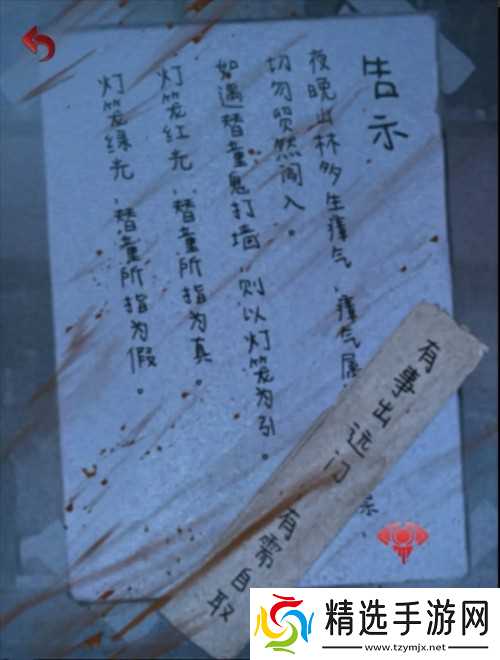 告示
夜晚山林多生瘴气，瘴气属
切勿贸然闯入。
如遇替童鬼打墙，则以灯笼为引。
灯笼红光，替童所指为真。
灯笼绿光，替童所指为假。
有事出远门
有需自取
精选手游网
www.tzymjx.com